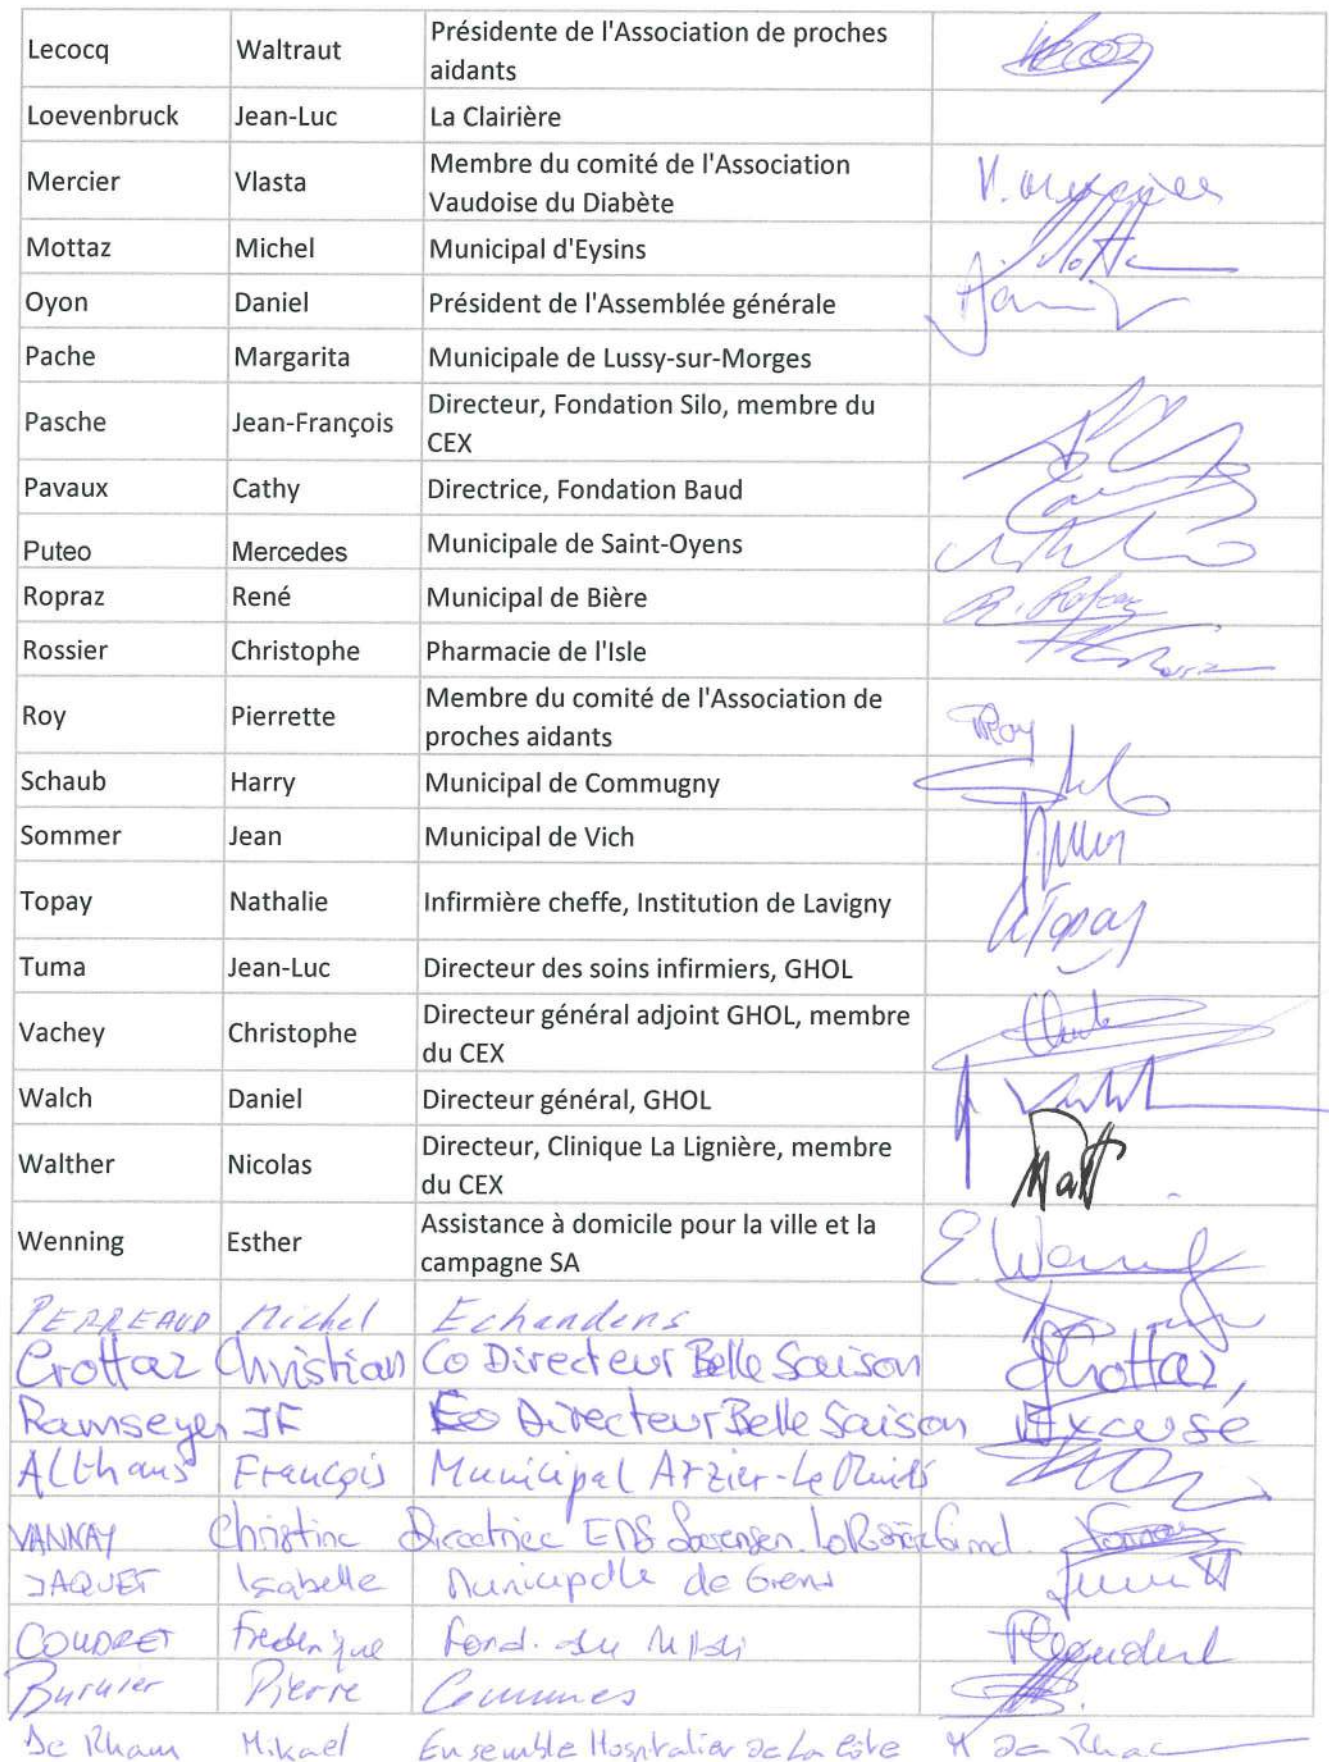 Lecocq Waltraut Présidente de l'Association de proches
aidants
Loevenbruck Jean-Luc La Clairière
Mercier Vlasta Membre du comité de l'Association
Vaudoise du Diabète V. Mercier
Mottaz Michel Municipal d'Eysins
Oyon Daniel Président de l'Assemblée générale
Pache Margarita Municipale de Lussy-sur-Morges
Pasche Jean-François Directeur, Fondation Silo, membre du
CEX
Pavaux Cathy Directrice, Fondation Baud
Puteo Mercedes Municipale de Saint-Oyens
Ropraz René Municipal de Bière R. Ropraz
Rossier Christophe Pharmacie de l'Isle
Roy Pierrette Membre du comité de l'Association de
proches aidants PRoy
Schaub Harry Municipal de Commugny
Sommer Jean Municipal de Vich
Topay Nathalie Infirmière cheffe, Institution de Lavigny Topay
Tuma Jean-Luc Directeur des soins infirmiers, GHOL
Vachey Christophe Directeur général adjoint GHOL, membre
du CEX
Walch Daniel Directeur général, GHOL
Walther Nicolas Directeur, Clinique La Lignière, membre
du CEX
Wenning Esther Assistance à domicile pour la ville et la
campagne SA E. Wenning
PERREAUD Michel Echandens
Crottaz Christian Co Directeur Belle Saison Crottaz
Ramseyer JF Co Directeur Belle Saison Excusé
Althaus François Municipal Arzier-Le Muids
VANNAY Christine Directrice EMS
JAQUET Isabelle Municipale de Grens
COUDRET Frédérique Fond. du Midi FCoudret
Burnier Pierre Communes
De Rham Mikael Ensemble Hospitalier de La Côte M de Rham